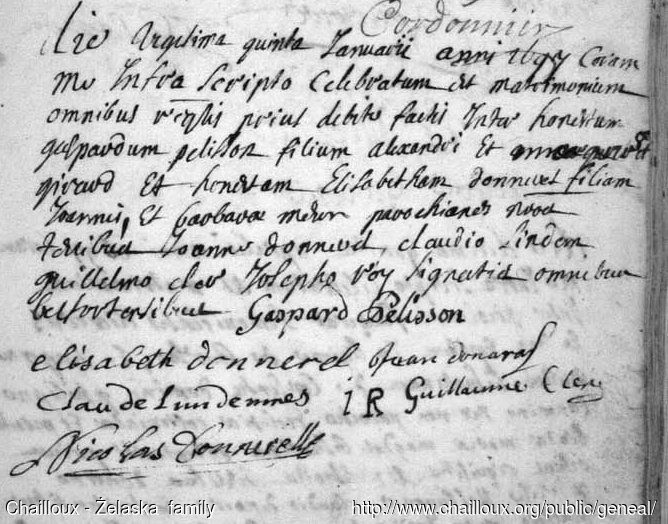 Cordonnier
Die Vigesima quinta Januarii anni 1697 Coram
me Infra Scripto Celebratum est matrimonium
omnibus prius debite factis Inter honestum
gaspardum pelisson filium alexandri Et
girard Et honestam Elisabetham donneret filiam
Joannis Et barbarae parochianos
testibus Joanne donneret claudio lindem
guillelmo cler Josepho roy signatis omnibus
belfortensibus Gaspard Pelisson
elisabeth donnerel
Claude Lundennes I R Guillaume Cler
Nicolas Donnerelle
Chailloux - Żelaska family http://www.chailloux.org/public/geneal/